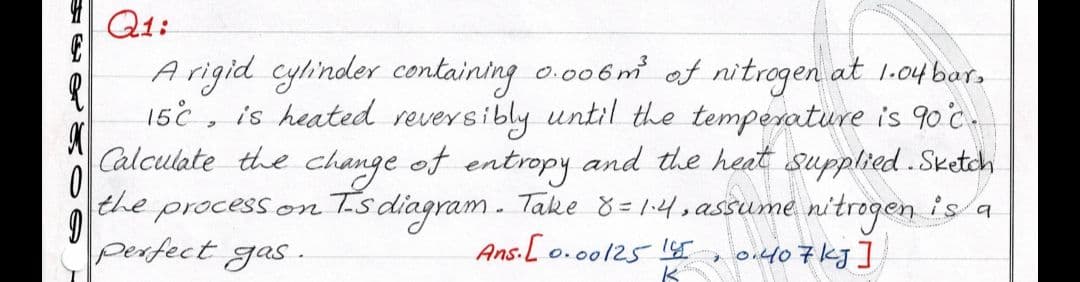 Q1:
A rigid cylinder containing 0.006m³ of nitrogen at 1.04 bar,
15°c, is heated reversibly until the temperature is 90°c.
Calculate the change of entropy and the heat supplied. Sketch
the process on T-s diagram. Take γ=1.4, assume nitrogen is a
perfect gas. Ans.[0.00125 kJ/K, 0.407kJ]